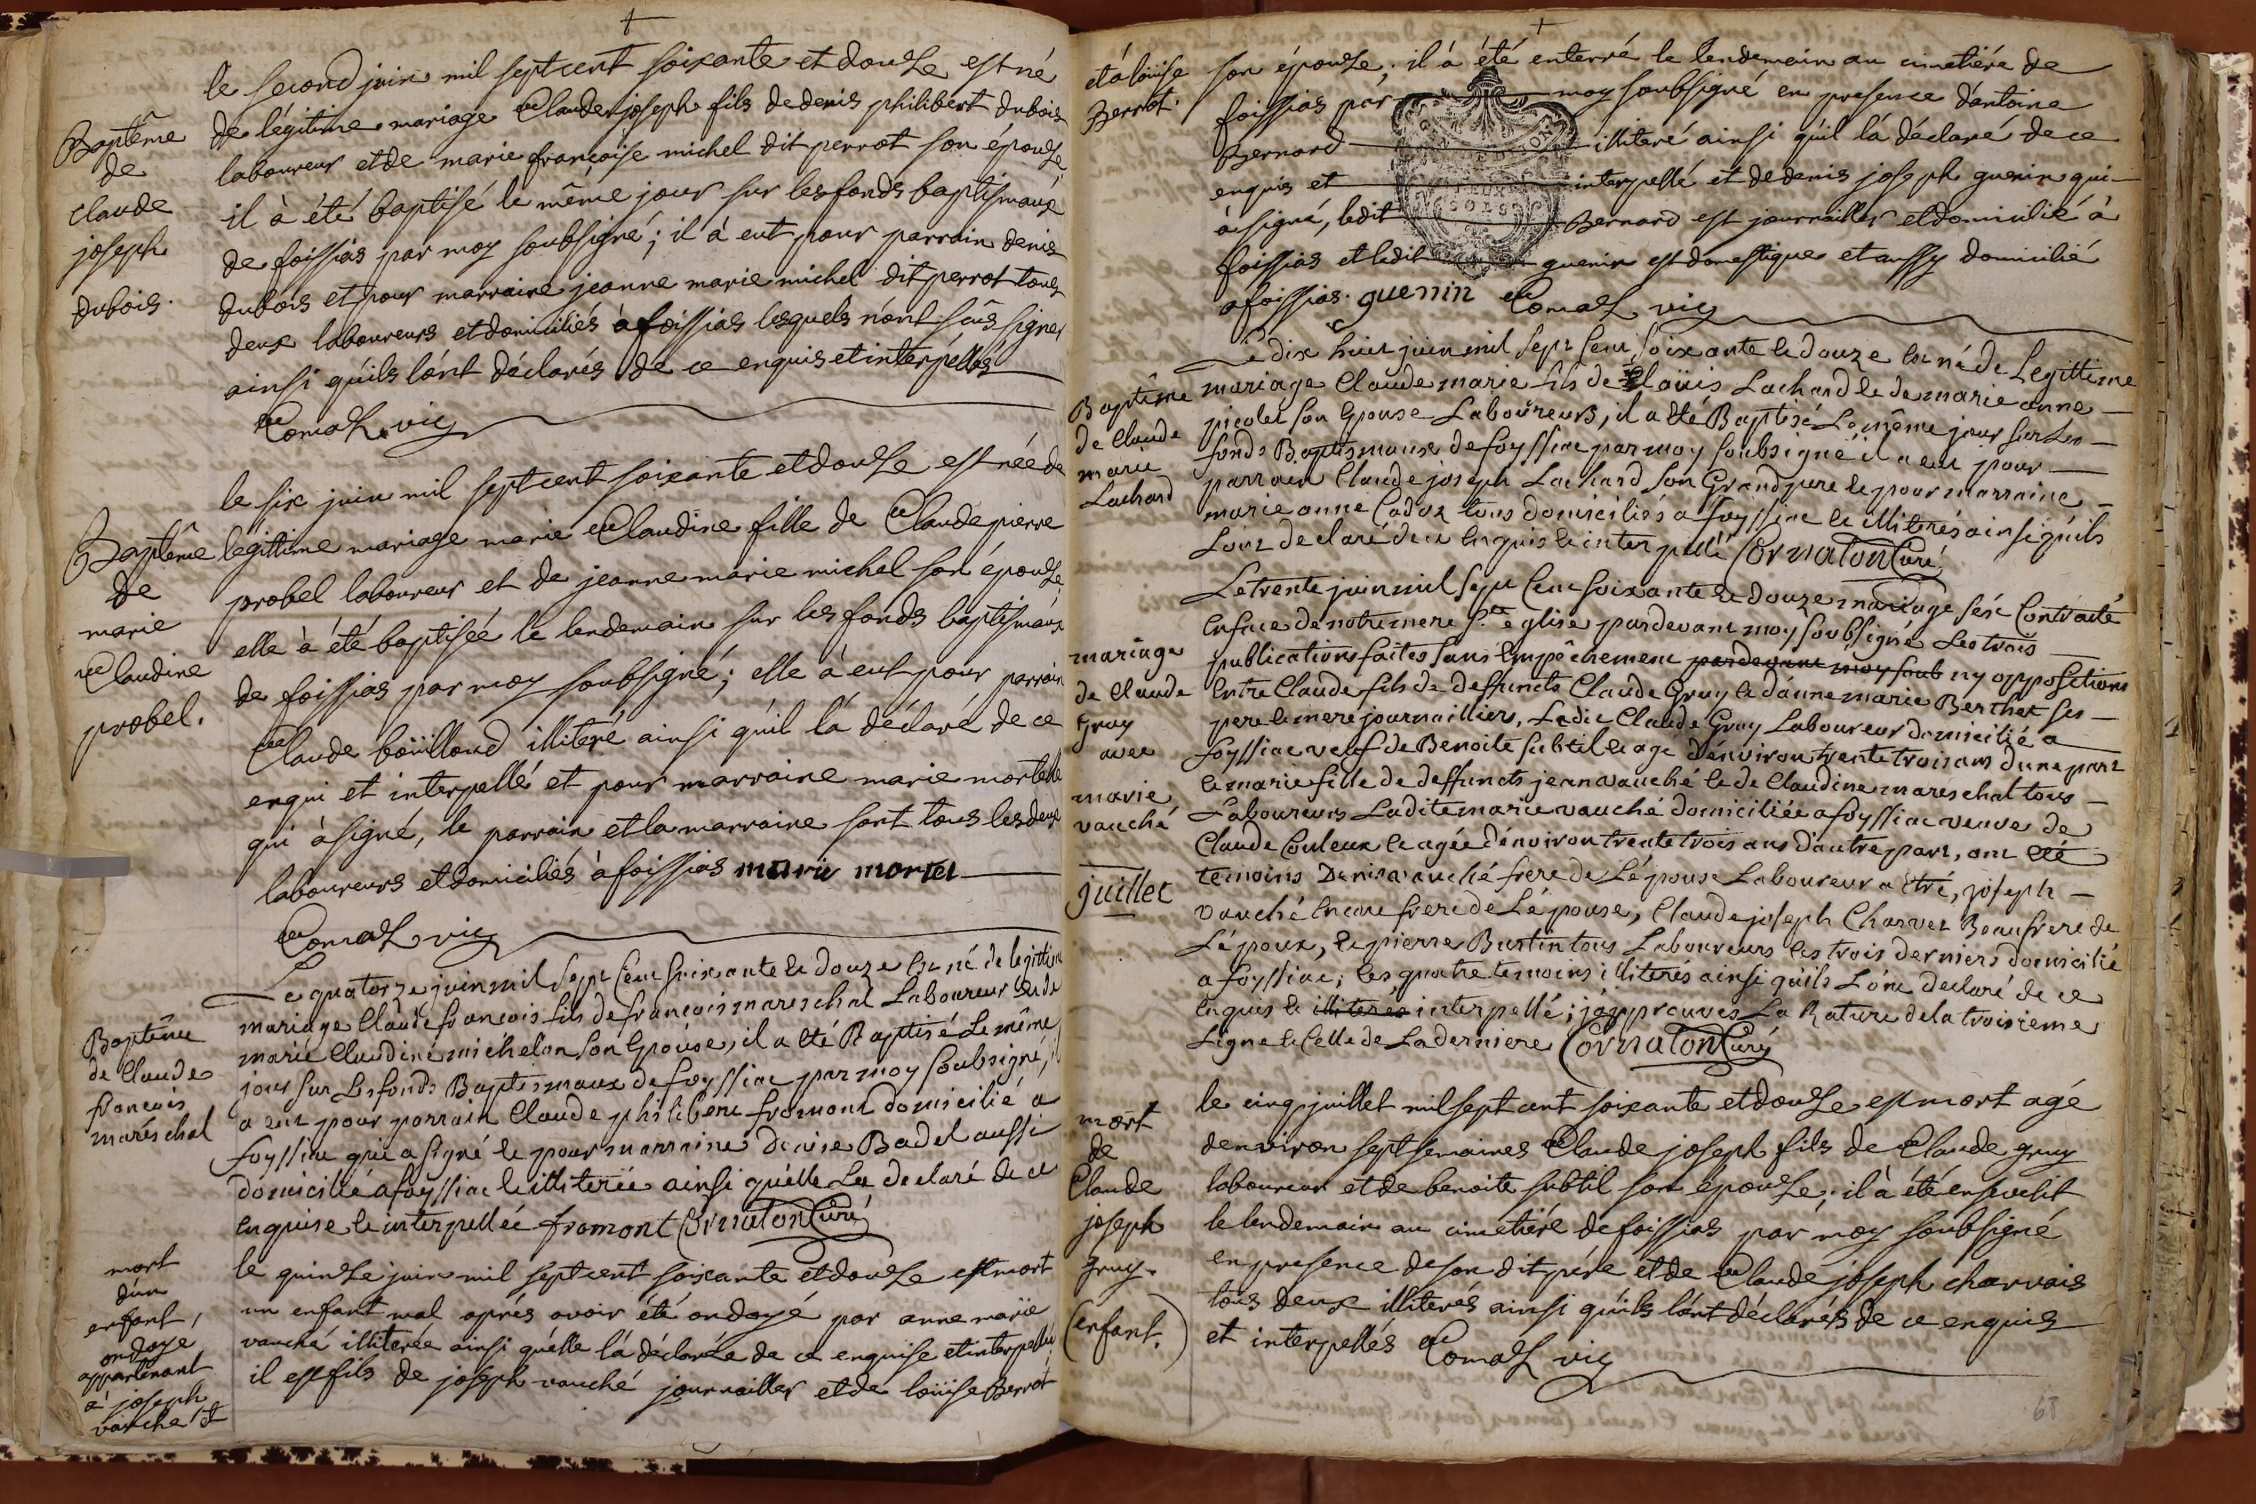 le second juin mil sept cent soixante et douze est né
de légitime mariage Claude joseph fils de denis philibert dubois
laboureur et de marie françoise michel dit perrot son épouse
il à été baptisé le même jour sur les fonds baptismaux
de foissias par moy soubsigné; il à eut pour parrain denis
dubois et pour marraine jeanne marie michel dit perrot tous
deux laboureurs et domiciliés à foissias lesquels n'ont sçûs signer
ainsi qu'ils l'ont déclarés de ce enquis et interpellés
Baptême
de
claude
joseph
dubois.
Comas vic
le six juin mil sept cent soixante et douze est née de
légitime mariage marie Claudine fille de Claude pierre
probel laboureur et de jeanne marie michel son épouse
elle à été baptisée le lendemain sur les fonds baptismaux
de foissias par moy soubsigné; elle à eut pour parrain
Claude boüilloud illiteré ainsi qu'il l'à déclaré de ce
enqui et interpellé et pour marraine marie mortel
qui à signé, le parrain et la marraine sont tous les deux
laboureurs et domiciliés à foissias marie mortel
Baptême
de
marie
Claudine
probel.
Comas vic
Le quatorze juin mil sept cent soixante et douze est né de legittime
mariage Claude françois fils de françois mareschal Laboureur et de
marie Claudine michelon son Epouse, il a été Baptisé Le même
jour sur Les fonds Baptismaux de foyssiac par moy soubsigné, il
a eut pour parrain Claude philibert fromont domicilié a
foyssiac qui a signé et pour marraine denise Badel aussi
domicilié a foyssiac et illiterée ainsi qu'elle L'a declaré de ce
enquise et interpellée fromont Cornaton Curé
Baptême
de Claude
françois
maréschal
le quinze juin mil sept cent soixante et douze est mort
un enfant mal après avoir été ondoyé par anne marie
vauché illiterée ainsi qu'elle l'à déclarée de ce enquise et interpellée
il est fils de joseph vauché journailler et de loüise Berrot
mort
d'un
enfant,
ondoye
appartenant
à joseph
vauche et
et à loüise
Berrot.
son épouse; il à été enterré le lendemain au cimetiére de
foissias par moy soubsigné en presence d'antoine
Bernard illiteré ainsi qu'il l'à déclaré de ce
enquis et interpellé et de denis joseph guenin qui
à signé, ledit Bernard est journailler et domicilié à
foissias et ledit guenin est domestique et aussy domicilié
a foissias. guenin Comas vic
Le dix huit juin mil sept cent soixante et douze est né de Legittime
mariage Claude marie fils de Loüis Lachard et de marie anne
picolet son Epouse Laboureurs, il a été Baptisé Le même jour sur Les
fonds Baptismaux de foyssiac par moy soubsigné il a eu pour
parrain Claude joseph Lachard son Grand pere et pour marraine
marie anne Cadoz tous domiciliés a foyssiac et illiterés ainsi qu'ils
L'ont declaré de ce enquis et interpellé Cornaton Curé
Baptême
de Claude
marie
Lachard
Le trente juin mil sept cent soixante et douze mariage s'est Contracté
en face de notre mere Ste eglise pardevant moy soubsigné Les trois
publications faites sans empêchement pardevant moy soub ny oppositions
entre Claude fils de deffuncts Claude Gruy et d'anne marie Berthet ses
pere et mere journailliers, Ledit Claude Gruy Laboureur domicilié a
foyssiac veuf de Benoite subtil et agé d'environ trente trois ans d'une part
et marie fille de deffuncts jean vauché et de Claudine mareschal tous
Laboureurs Laditte marie vauché domiciliée a foyssiac veuve de
Claude Couleux et agée d'environ trente trois ans d'autre part, ont été
temoins Denis vauché frere de L'épouse Laboureur a étré, joseph
vauché encore frere de L'épouse, Claude joseph Charvet Beau frere de
L'époux, et pierre Burtin tous Laboureurs les trois derniers domicilié
a foyssiac, Les quatre temoins illiterés ainsi qu'ils L'ont declaré de ce
enquis et illiteres interpellé; j'approuve La Rature de la troisieme
Ligne et Celle de La derniere Cornaton Curé
mariage
de Claude
Gruy
avec
marie
vauché
juillet
le cinq juillet mil sept cent soixante et douze est mort agé
d'environ sept semaines Claude joseph fils de Claude gruy
laboureur et de benoite subtil son épouse; il à été ensevelit
le lendemain au cimetiére de foissias par moy soubsigné
en presence de son dit pére et de Claude joseph charvais
tous deux illiterés ainsi qu'ils l'ont déclarés de ce enquis
et interpellés Comas vic
mort
de
Claude
joseph
gruy.
(enfant.)
68